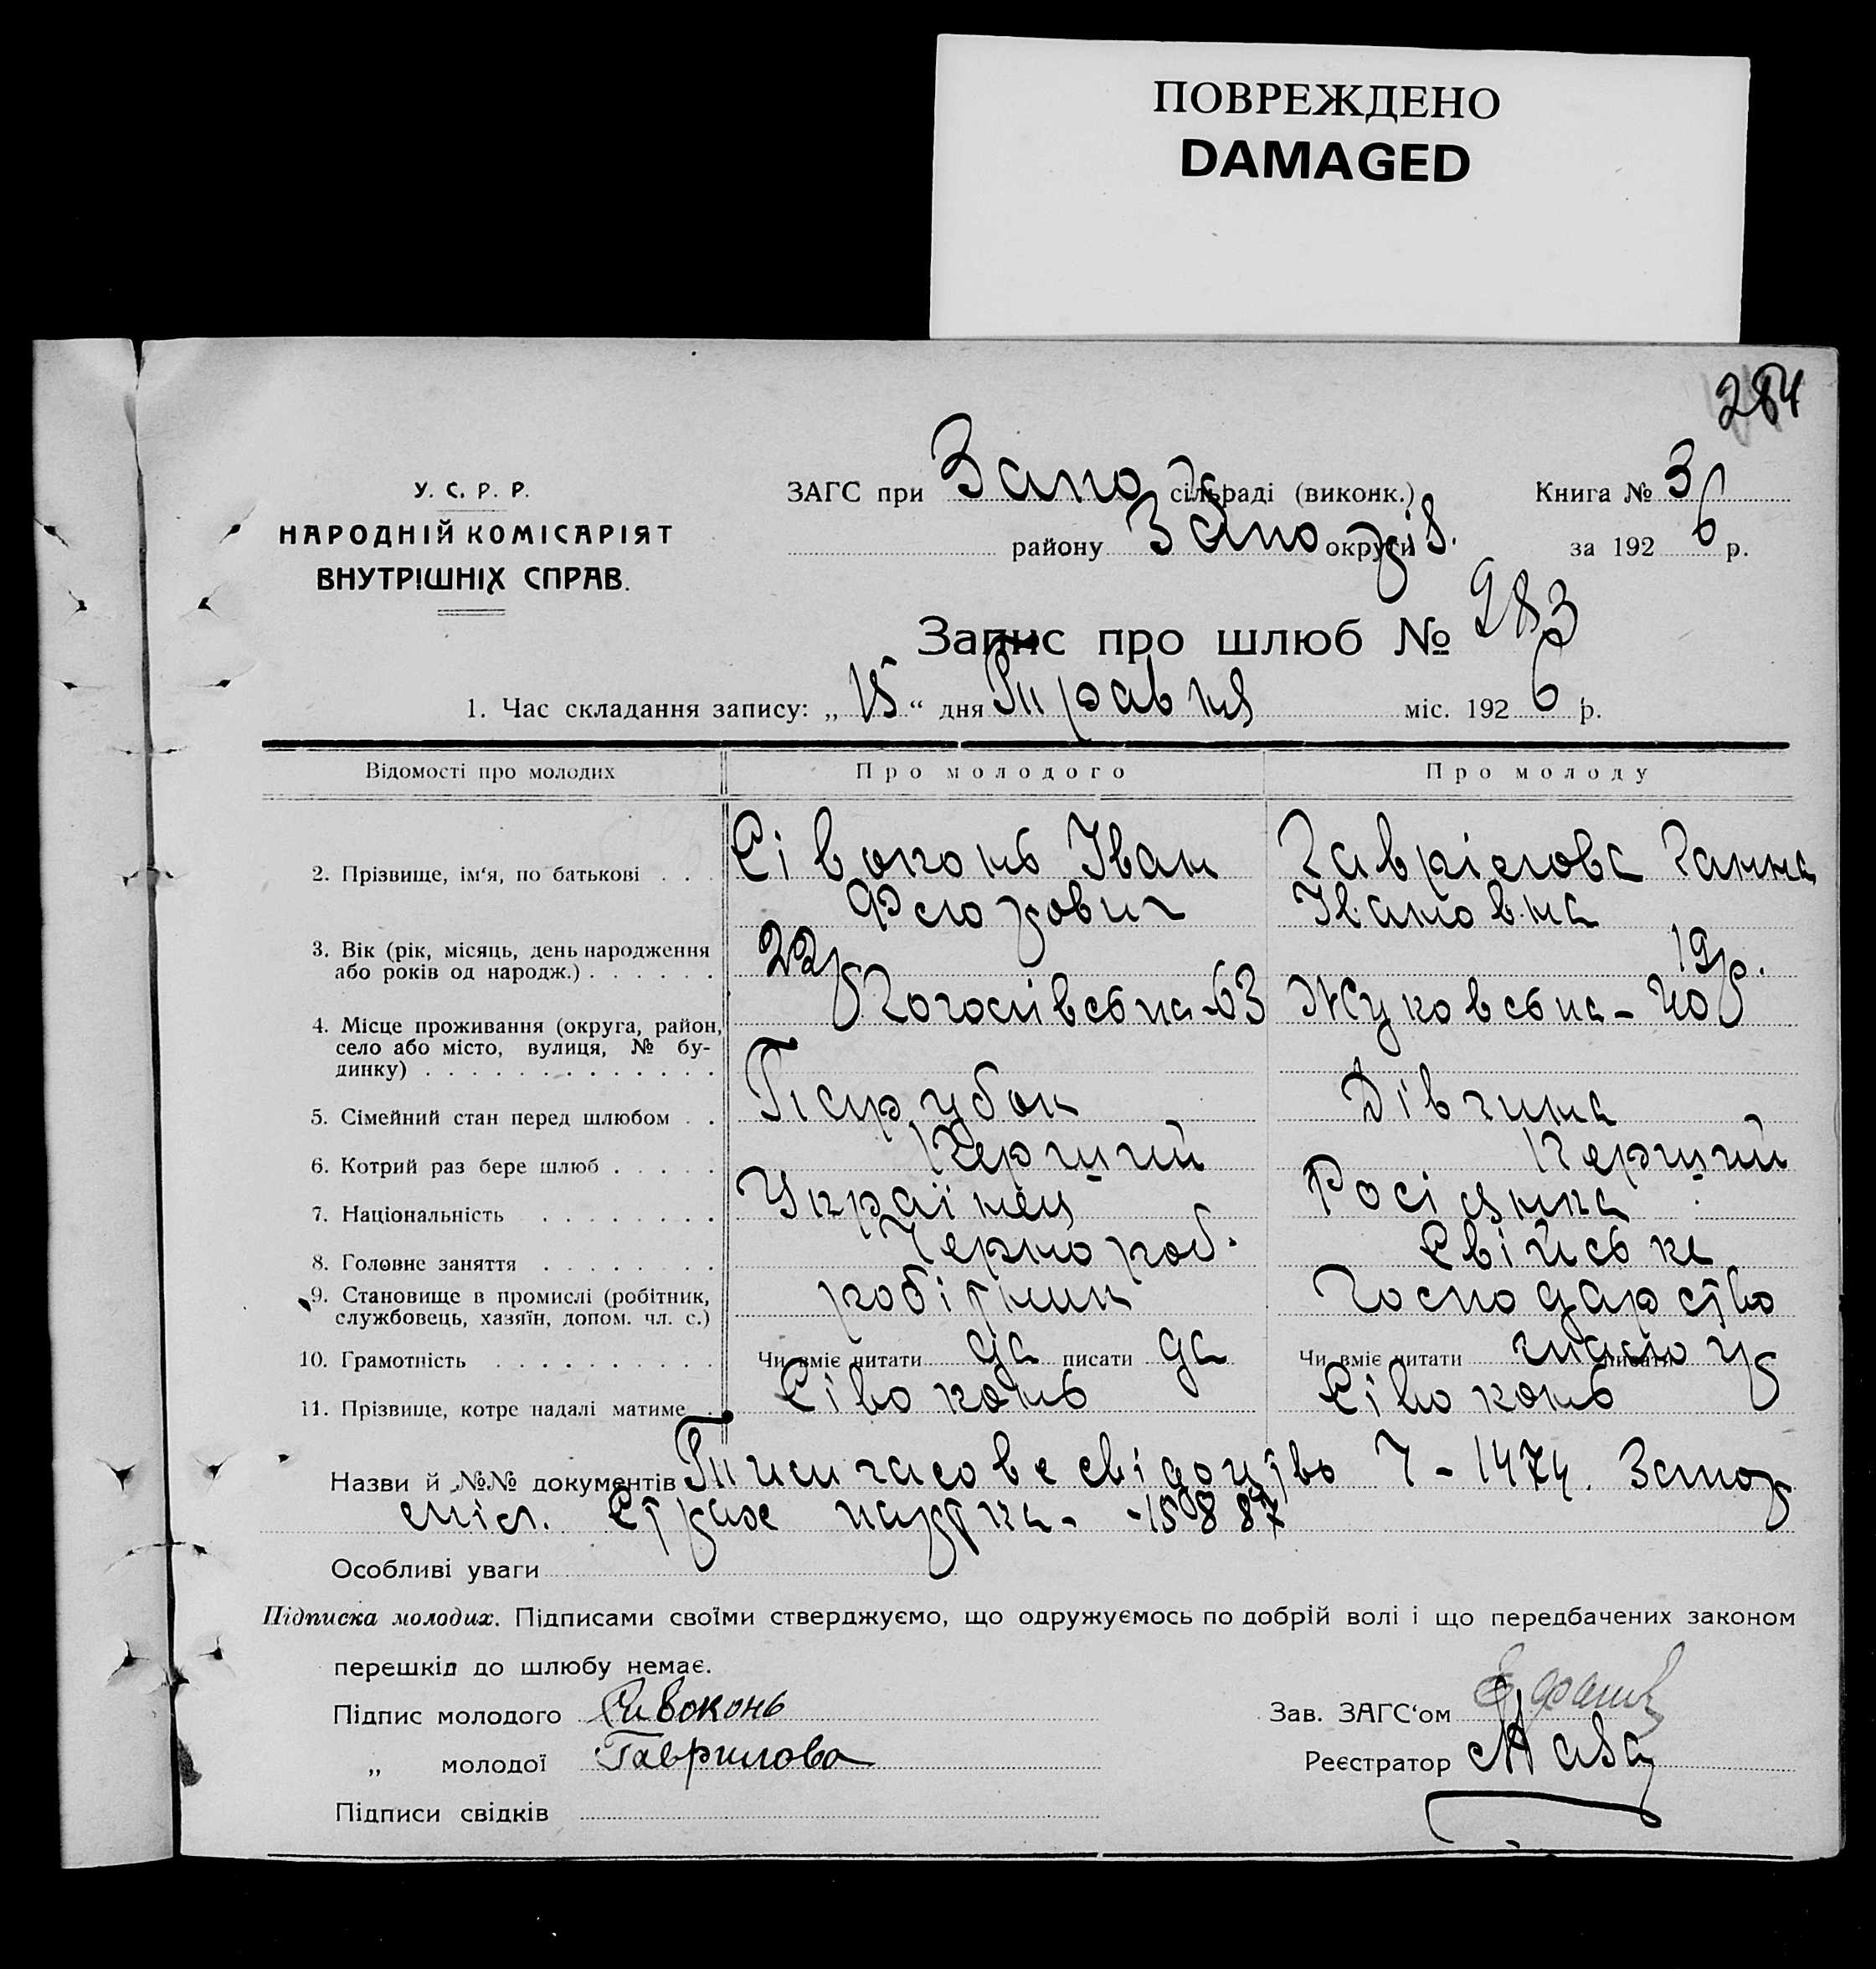 ПОВРЕЖДЕНО
DAMAGED
284
У. С. Р. Р.
НАРОДНІЙ КОМІСАРІЯТ
ВНУТРІШНІХ СПРАВ.
ЗАГС при Запо сільраді (виконк.) Книга № 3
району Запо округи за 1926 р.
Запис про шлюб № 283
1. Час складання запису: „15“ дня Травня міс. 1926 р.
Відомості про молодих Про молодого Про молоду
2. Прізвище, ім'я, по батькові . . . Сівоконь Іван Гаврілова Ганна
Федорович Івановна
3. Вік (рік, місяць, день народження
або років од народж.) . . . . . . 22р 19р.
4. Місце проживання (округа, район, 63 Жуковська -
село або місто, вулиця, № бу-
динку) . . . . . . . . . . . . .
5. Сімейний стан перед шлюбом . . Парубок Дівчина
6. Котрий раз бере шлюб . . . . . Перший Перший
7. Національність . . . . . . . . Українец Росіянка
8. Головне заняття . . . . . . . . Чернороб. Свійське
9. Становище в промислі (робітник,
службовець, хазяїн, допом. чл. с.) робітник господарство
10. Грамотність . . . . . . . . . . Чи вміє читати да писати да Чи вміє читати писати
11. Прізвище, котре надалі матиме . Сівоконь Сівоконь
Назви й №№ документів Тимчасове свідоцтво 7 - 1474. Запор
міл. Страх картка - 15887
Особливі уваги
Підписка молодих. Підписами своїми стверджуємо, що одружуємось по добрій волі і що передбачених законом
перешкід до шлюбу немає.
Підпис молодого Сивоконь Зав. ЗАГС'ом
„ молодої Гаврилова Реєстратор
Підписи свідків